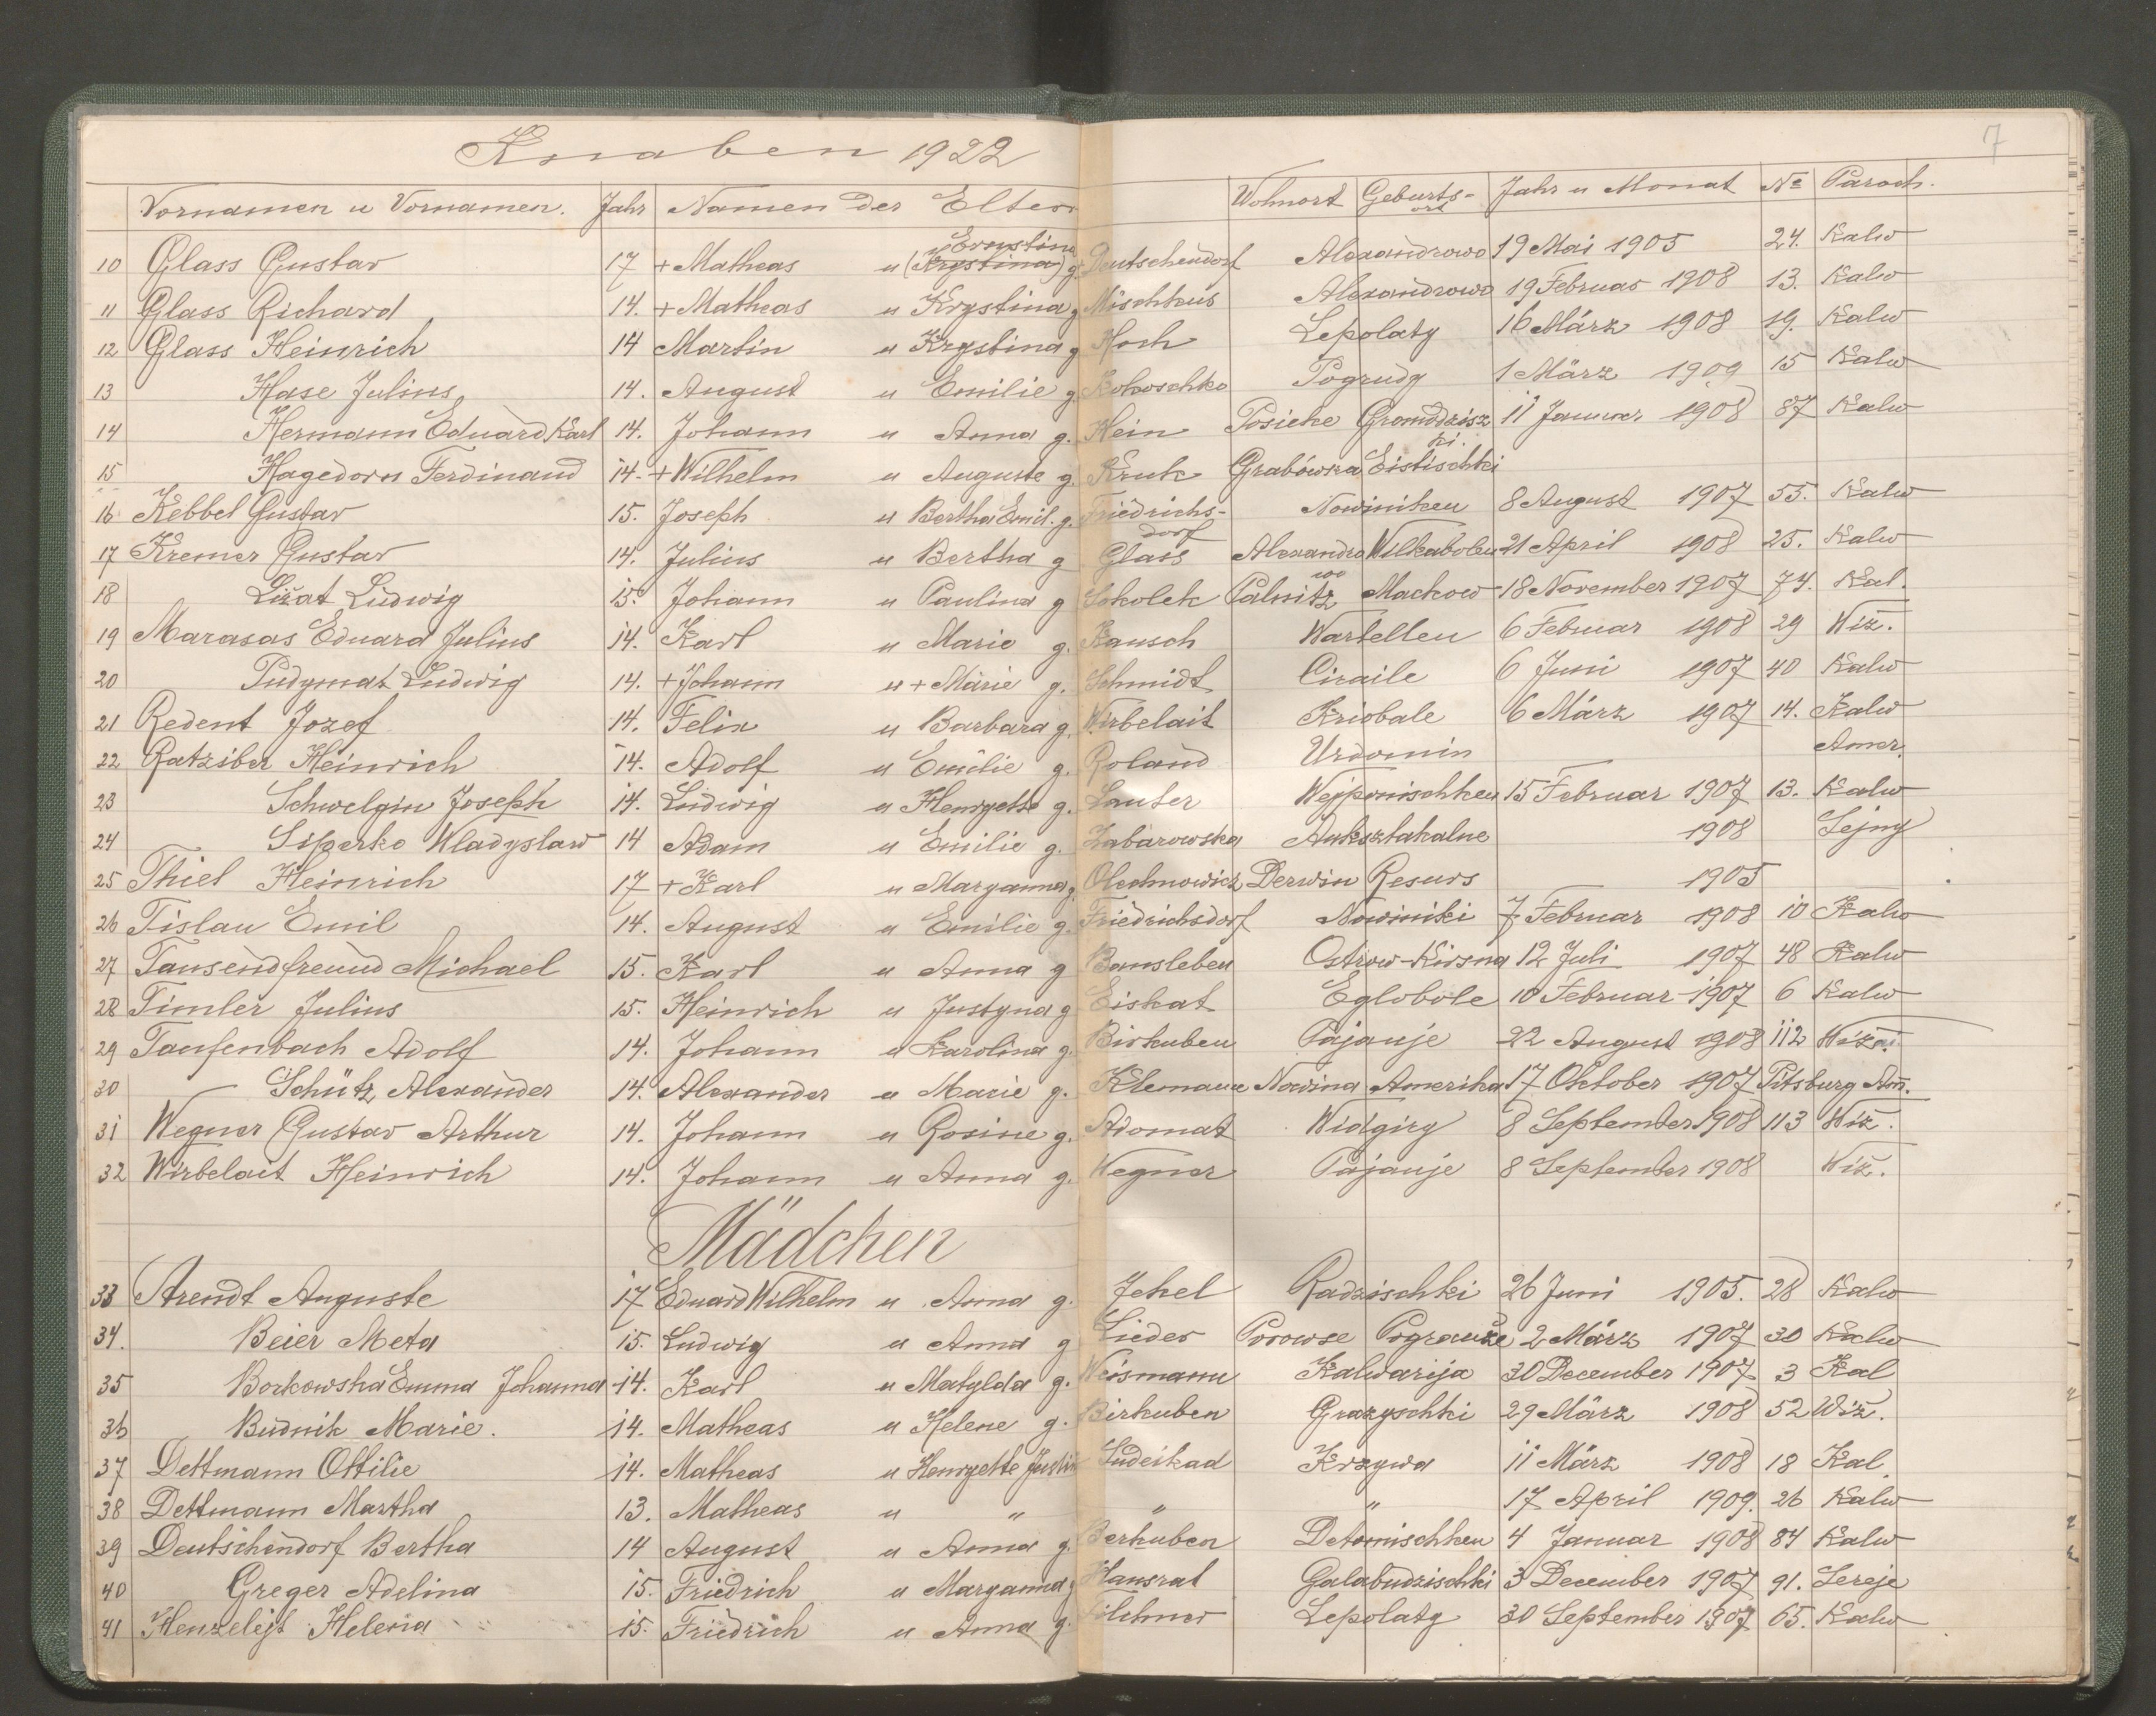 Knaben 1922
7
Vornamen u Vornamen. Jahr Namen der Eltern Wohnort Geburts-ort Jahr u Monat № Paroch.
10 Glass Gustav 17 + Matheas u (Krystina) Ernstina g. Deutschendorf Alexandrowo 19 Mai 1905 24. Kalw
11 Glass Richard 14. + Matheas u Krystina g Mischkus Alexandrowo 19 Februar 1908 13. Kalw
12 Glass Heinrich 14 Martin u Krystina g Hoch Lepolaty 16 März 1908 19. Kalw
13 Hase Julius 14. August u Emilie g. Kokoschko Pogrudy 1 März 1909 15 Kalw
14 Hermann Eduard Karl 14. Johann u Anna g. Hein Posicke Gromadziszki. 11 Januar 1908 87 Kalw
15 Hagedorn Ferdinand 14. + Wilhelm u Auguste g. Kruk Grabówka Eistischki
16 Kebbel Gustav 15. Joseph u Bertha Emil. g. Friedrichs-dorf Nowiniken 8 August 1907 55. Kalw
17 Kremer Gustav 14. Julius u Bertha g Glass Alexandrowo Wilkabolen 21 April 1908 25. Kalw
18 Lizat Ludwig 15. Johann u Paulina g Sokolek Palnitz Mackow 18 November 1907 74. Kal.
19 Marasas Eduard Julius 14. Karl u Marie g. Kausch Wartellen 6 Februar 1908 29 Wiż.
20 Pudymat Ludwig 14. + Johann u + Marie g. Schmidt Ciraile 6 Juni 1907 40 Kalw
21 Redent Jozef 14. Felix u Barbara g. Wirbelait Kriobale 6 März 1907 14. Kalw
22 Ratziber Heinrich 14. Adolf u Emilie g. Roland Urdomin Amer.
23 Schwelgin Joseph 14. Ludwig u Henryette g. Lauter Wejponischken 15 Februar 1907 13. Kalw
24 Siperko Wladyslaw 14 Adam u Emilie g. Zabarowska Auksztakalne 1908 Sejny
25 Thiel Heinrich 17 + Karl u Maryanna g. Olechnowicz Derwin Resurs 1905
26 Tislau Emil 14. August u Emilie g. Friedrichsdorf Nowiniki 7 Februar 1908 10 Kalw
27 Tausendfreund Michael 15. Karl u Anna g Bansleben Ostrow-Kirsna 12 Juli 1907 48 Kalw
28 Timler Julius 15. Heinrich u Justyna g Eiskat Eglobole 10 Februar 1907 6 Kalw
29 Taufenbach Adolf 14. Johann u Karolina g. Birkuben Pajauje 22 August 1908 112 Wiż.
30 Schütz, Alexander 14. Alexander u Marie g. Klemann Nowina Amerika 17 Oktober 1907 Pitsburg Am.
31 Wegner Gustav Arthur 14. Johann u Rosine g. Adomat Widgiry 8 September 1908 113 Wiż.
32 Wirbelait Heinrich 14. Johann u Anna g. Wegner Pajauje 8 September 1908 Wiż.
Mädchen
33 Arendt Auguste 17 Eduard Wilhelm u Anna g. Jekel Radzischki 26 Juni 1905. 28 Kalw
34. Beier Meta 15. Ludwig u Anna g Lieder Porowse Pograuże 2 März 1907 30 Kalw
35 Borkowska Emma Johanna 14. Karl u Matylda g. Weismann Kalwarija 30 December 1907 3 Kal
36 Budnik Marie. 14. Matheas u Helene g. Birkuben Grazyschki 29 März 1908 52 Wiż.
37 Dettmann Ottilie 14. Matheas u Henryette Justin Ludeikad Krzywa 11 März 1908 18 Kal.
38 Dettmann Martha 13. Matheas u " " " 17 April 1909. 26 Kalw
39 Deutschendorf Bertha 14 August u Anna g. Berkuben Detomischken 4 Januar 1908 84 Kalw
40 Greger Adelina 15. Friedrich u Maryanna g Hausrat Galabudzischki 3 December 1907 91. Sereje
41 Henzelejt Helena 15. Friedrich u Anna g. Filchner Lepolaty 30 September 1907 65. Kalw